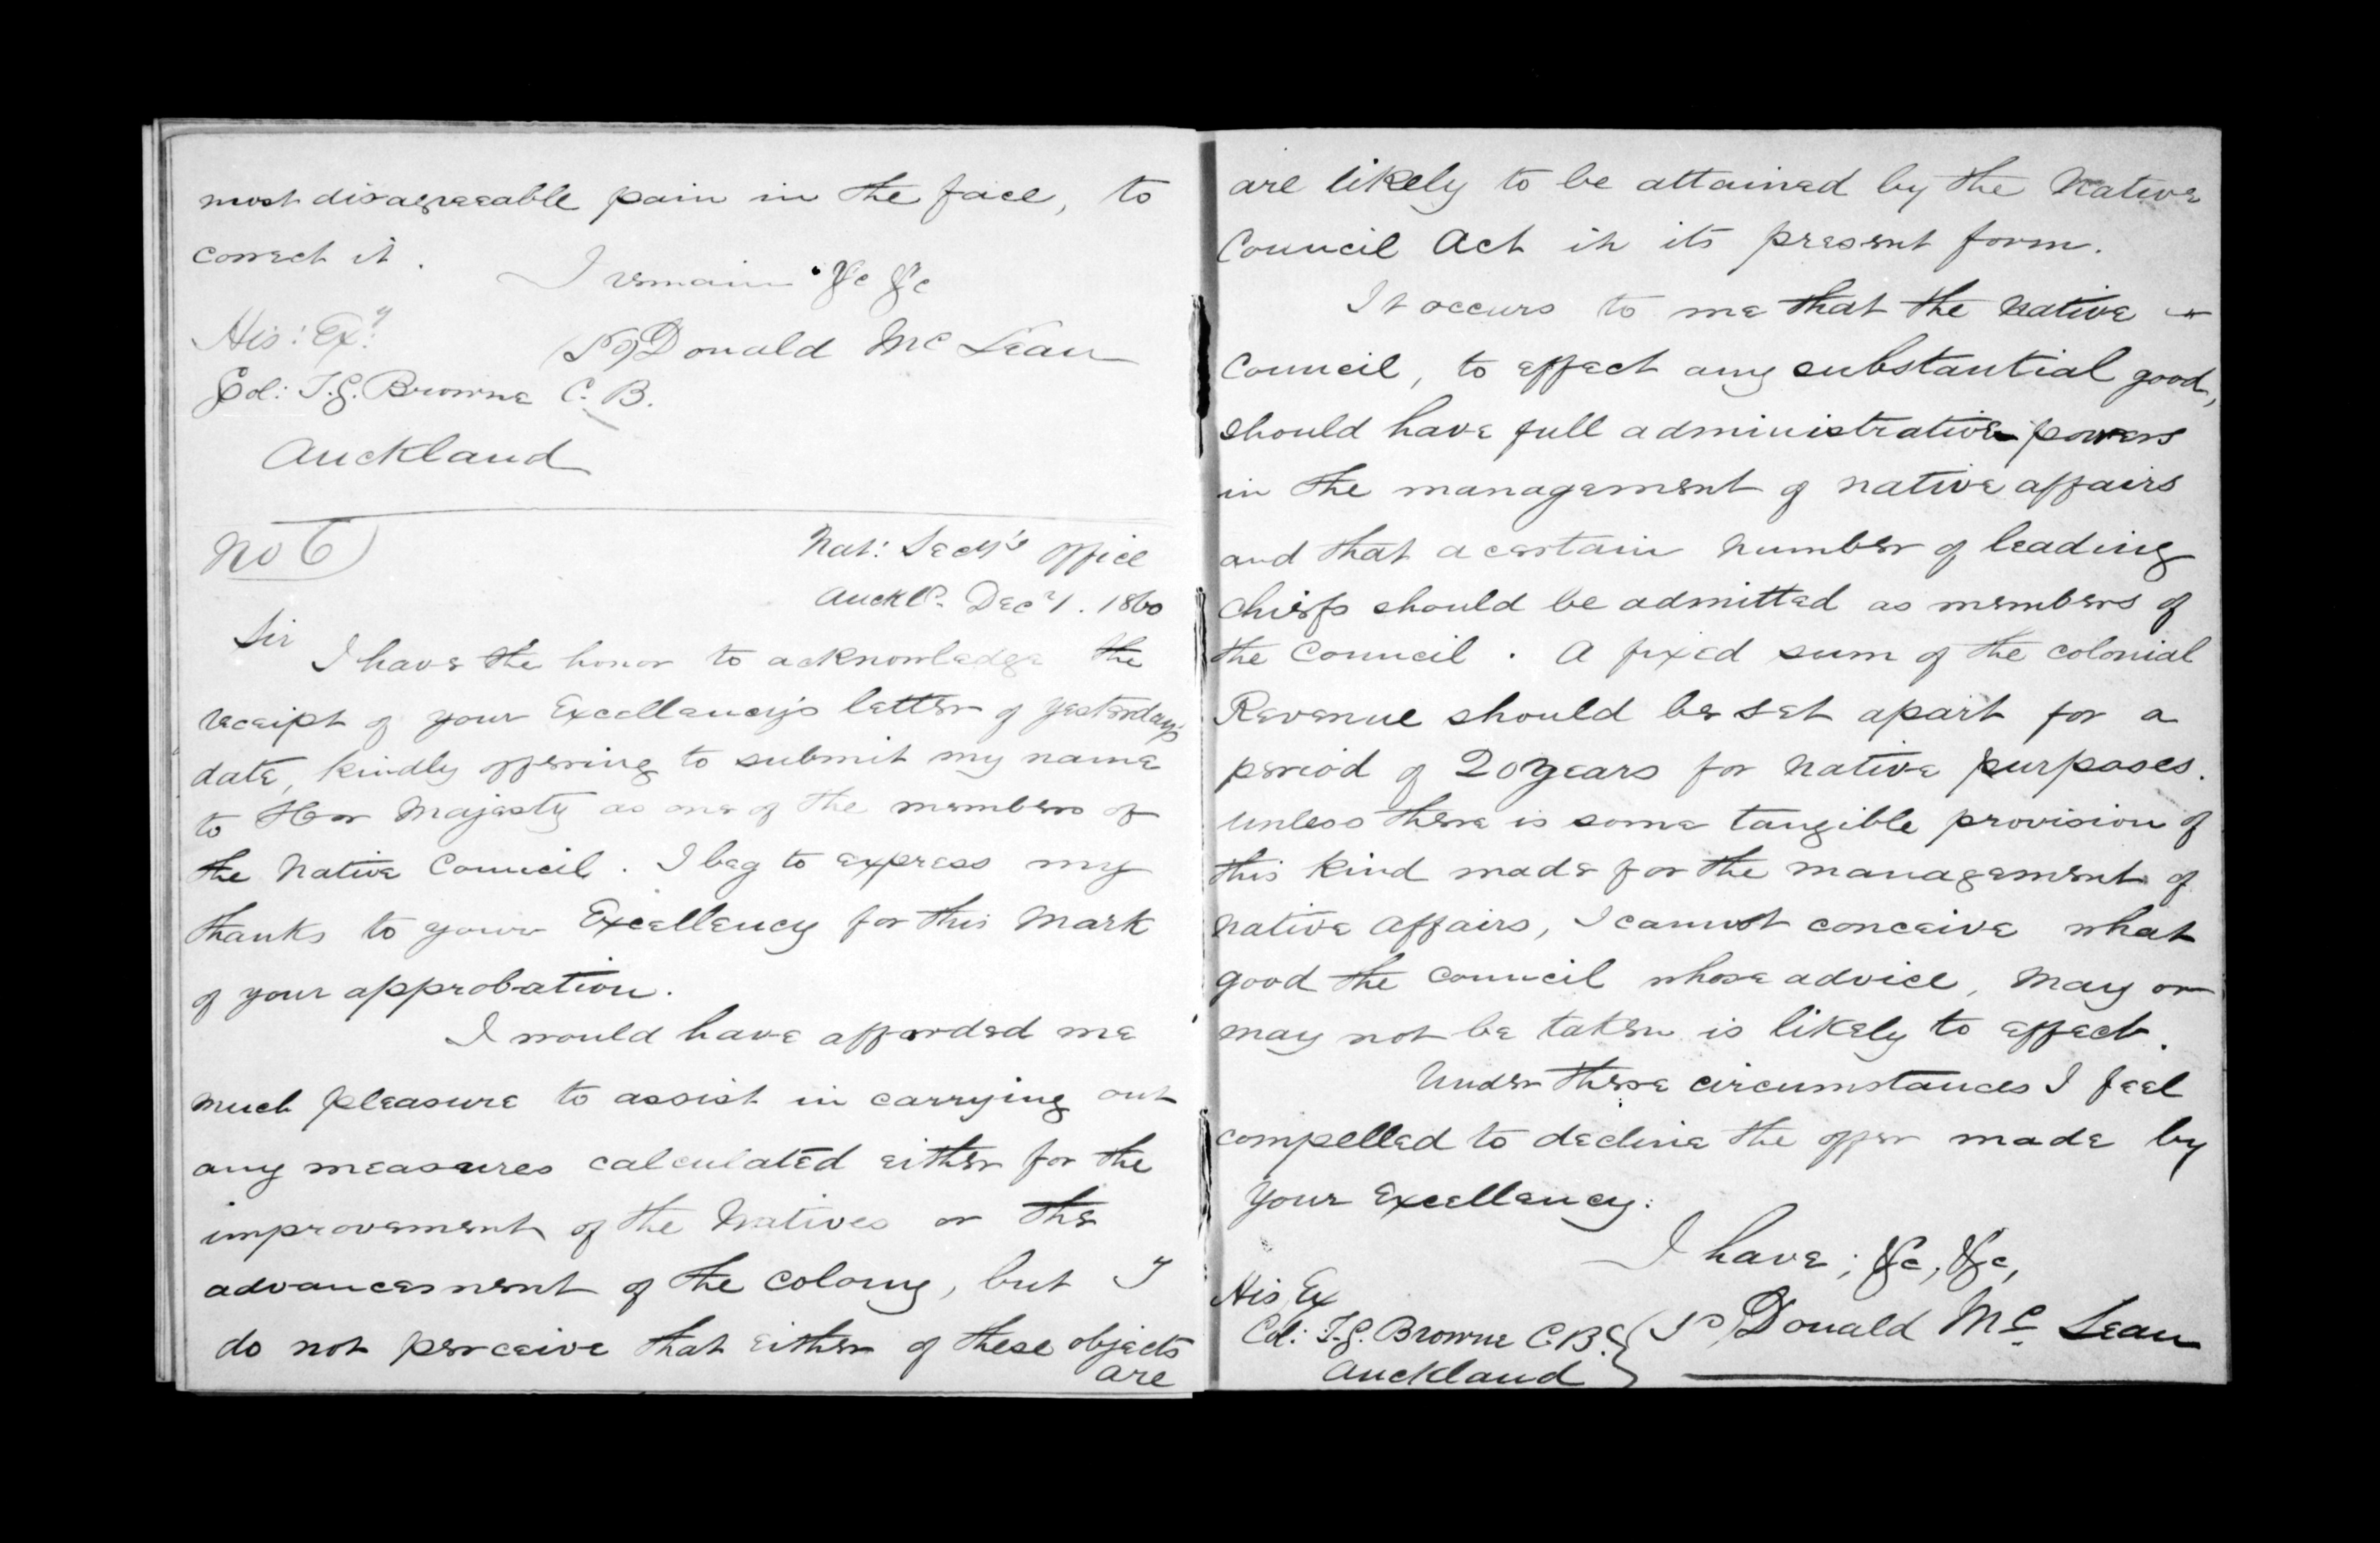 most disagreeable pain in the face, to
correct it.
I remain &c &c
His: Exy:
(Sd) Donald McLean
Col: T.G. Browne C.B.
Auckland
No 6)
Nat: Secy's Office
Auckld. Decr 1. 1860
Sir
I have the honor to acknowledge the
receipt of your Excellency's letter of yesterdays
date, kindly offering to submit my name
to Her Majesty as one of the members of
the Native Council. I beg to express my
thanks to your Excellency for this Mark
of your approbation.
I would have afforded me
much pleasure to assist in carrying out
any measures calculated either for the
improvement of the Natives or the
advancement of the colony, but I
do not perceive that either of these objects
are
are likely to be attained by the Native
Council Act in its present form.
It occurs to me that the Native
Council, to effect any substantial good,
should have full administrative powers
in the management of native affairs
and that a certain number of leading
chiefs should be admitted as members of
the Council. A fixed sum of the colonial
Revenue should be set apart for a
period of 20 years for Native purposes.
Unless there is some tangible provision of
this kind made for the management of
Native Affairs, I cannot conceive what
good the Council whose advice, may or
may not be taken is likely to effect.
Under these circumstances I feel
compelled to decline the offer made by
Your Excellency:
I have; &c, &c,
His Ex
Col: T.G. Browne C.B. (Sd) Donald McLean
Auckland